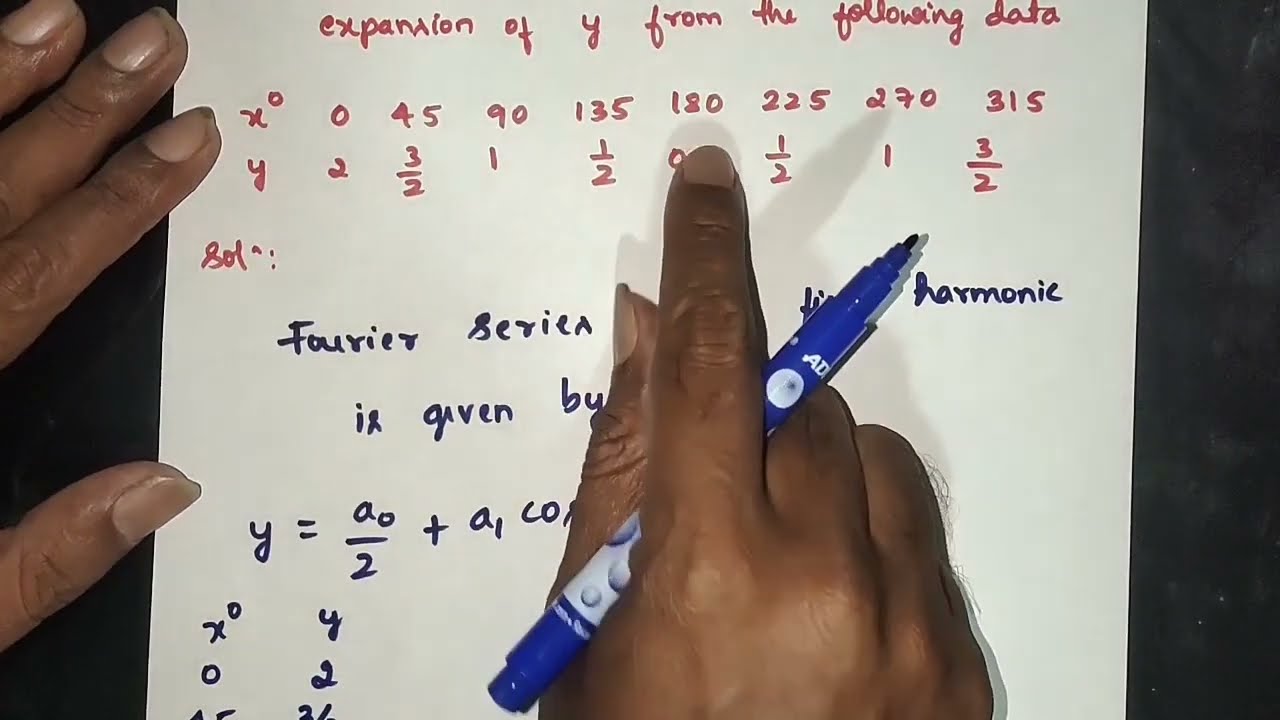 expansion of y from the following data
x⁰ 0 45 90 135 180 225 270 315
y 2 3/2 1 1/2 0 1/2 1 3/2
Solⁿ:
Fourier series harmonic
is given by
y = a₀/2 + a₁ cos
x⁰ y
0 2
45 3/2
AD